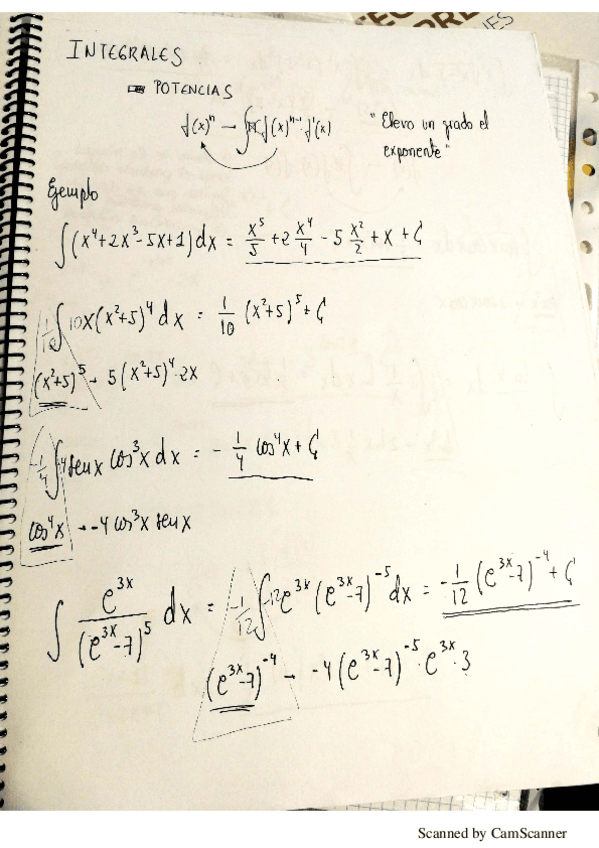 INTEGRALES
POTENCIAS
f(x)ⁿ → ∫ f(x)ⁿ⁻¹ · f'(x)
"Elevo un grado el
exponente"
Ejemplo
∫(x⁴+2x³-5x+1)dx = x⁵/5 + 2 x⁴/4 - 5 x²/2 + x + C
1/10 ∫ 10x(x²+5)⁴ dx = 1/10 (x²+5)⁵ + C
(x²+5)⁵ → 5(x²+5)⁴·2x
-1/4 ∫ -4 sen x cos³x dx = - 1/4 cos⁴x + C
cos⁴x → -4 cos³x sen x
∫ e³ˣ/(e³ˣ-7)⁵ dx = -1/12 ∫ -12e³ˣ(e³ˣ-7)⁻⁵ dx = -1/12 (e³ˣ-7)⁻⁴ + C
(e³ˣ-7)⁻⁴ → -4(e³ˣ-7)⁻⁵·e³ˣ·3
Scanned by CamScanner